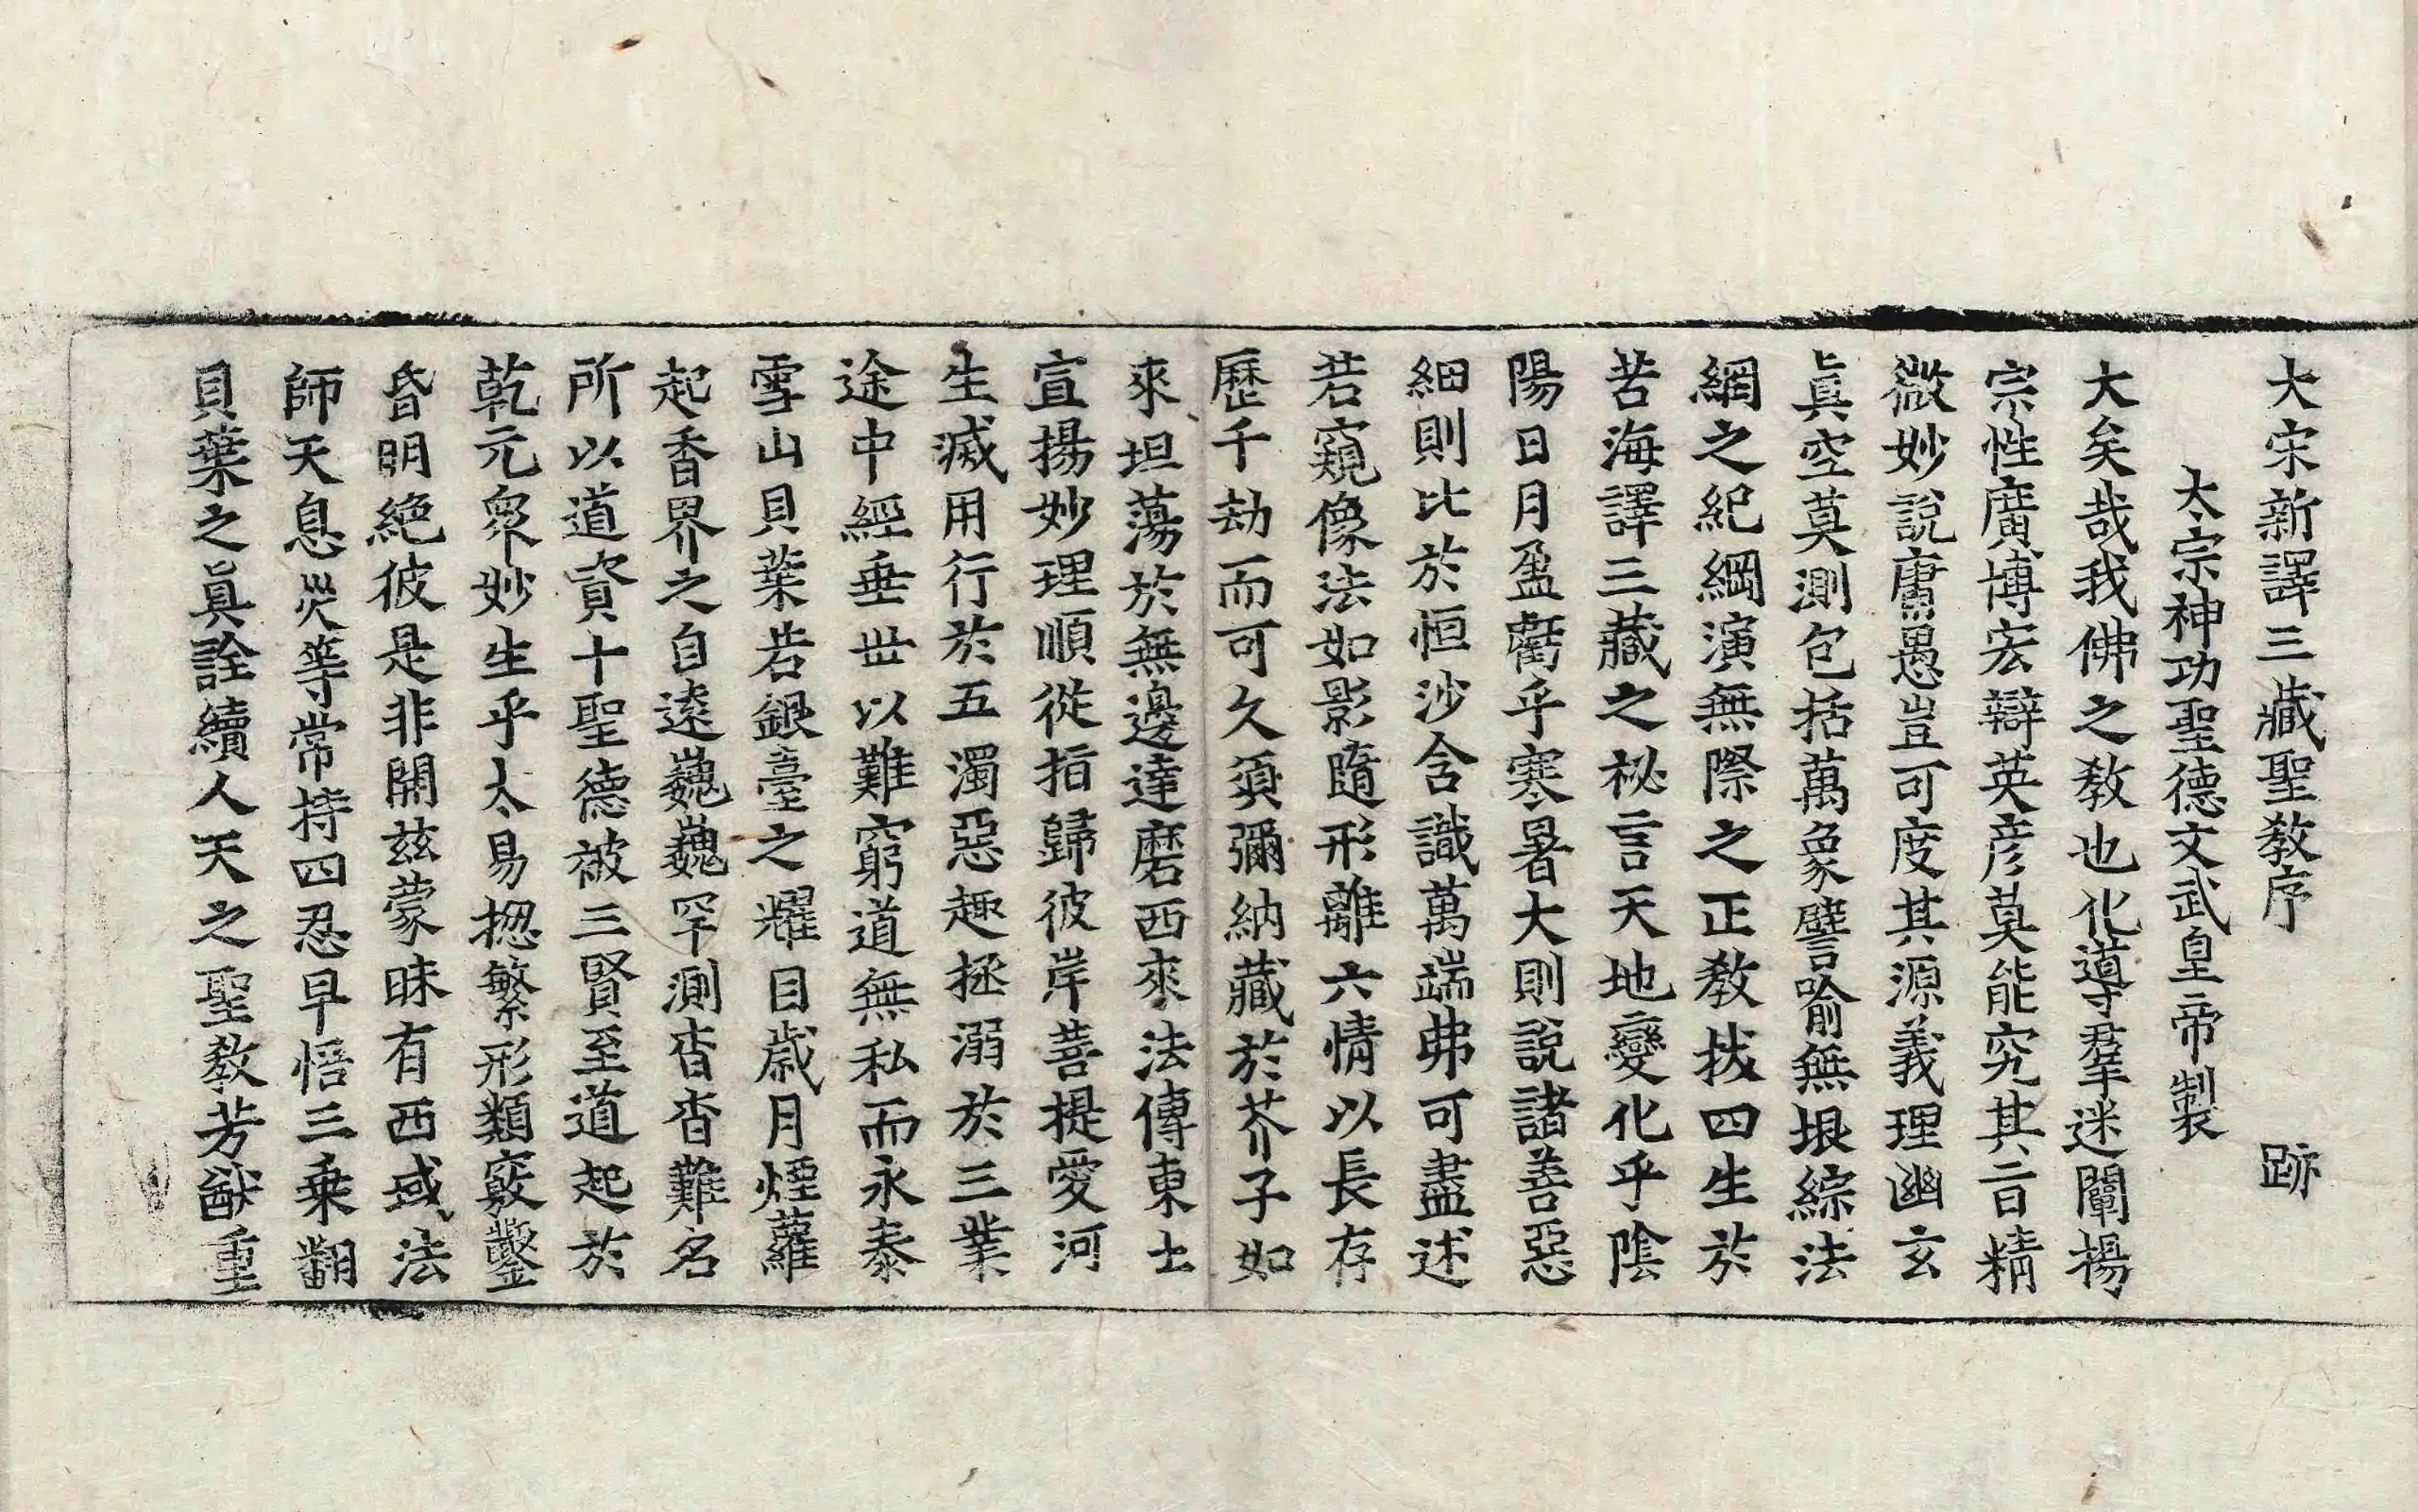 大宋新譯三藏聖教序 跡
太宗神功聖德文武皇帝製
大矣哉我佛之教也化導羣迷闡揚
宗性廣博宏辯英彦莫能究其旨精
微妙說庸愚豈可度其源義理幽玄
眞空莫測包括萬象譬喻無垠綜法
網之紀綱演無際之正教拔四生於
苦海譯三藏之祕言天地變化乎陰
陽日月盈虧乎寒暑大則說諸善惡
細則比於恒沙含識萬端弗可盡述
若窺像法如影隨形離六情以長存
歷千劫而可久須彌納藏於芥子如
來坦蕩於無邊達磨西來法傳東土
宣揚妙理順從指歸彼岸菩提愛河
生滅用行於五濁惡趣拯溺於三業
途中經垂世以難窮道無私而永泰
雪山貝葉若銀臺之耀目歲月煙蘿
起香界之自遠巍巍罕測杳杳難名
所以道資十聖德被三賢至道起於
乾元衆妙生乎太易揔繁形類竅鑿
昏明絶彼是非開兹蒙昧有西域法
師天息災等常持四忍早悟三乘翻
貝葉之眞詮續人天之聖教芳猷重